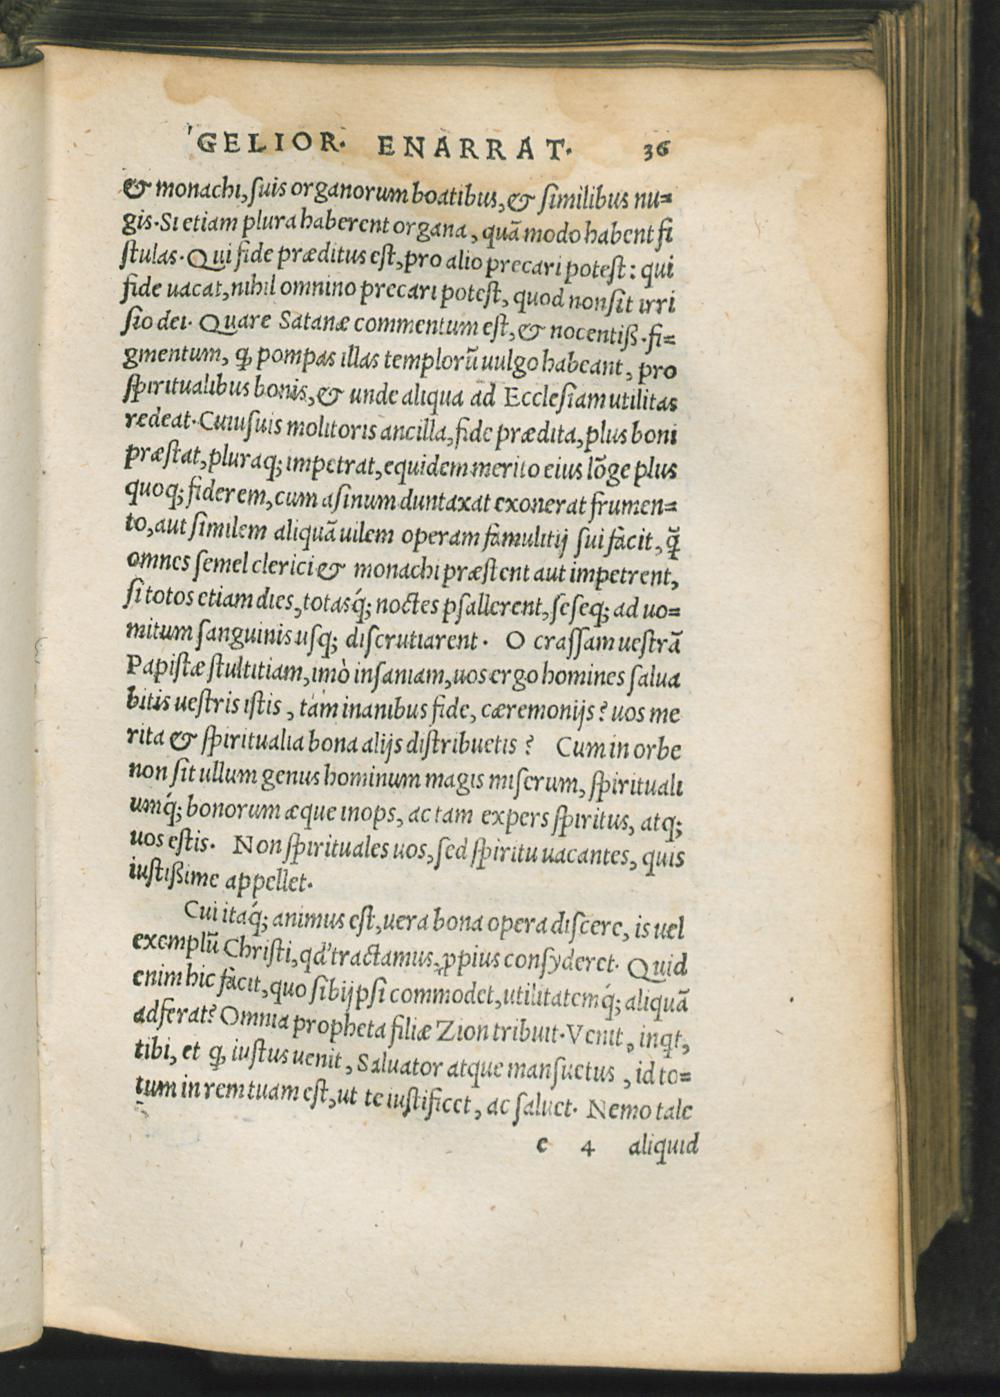 GELIOR· ENARRAT· 36
& monachi, suis organorum boatibus, & similibus nu=
gis· Si etiam plura haberent organa, quā modo habent fi
stulas· Qui fide præditus est, pro alio precari potest: qui
fide uacat, nihil omnino precari potest, quod non sit irri
sio dei· Quare Satanæ commentum est, & nocentiß· fi=
gmentum, ꝙ pompas illas templorū uulgo habeant, pro
spiritualibus bonis, & unde aliqua ad Ecclesiam utilitas
redeat· Cuiusuis molitoris ancilla, fide prædita, plus boni
præstat, pluraq; impetrat, equidem merito eius lōge plus
quoq; fiderem, cum asinum duntaxat exonerat frumen=
to, aut similem aliquā uilem operam famulitij sui facit, q̄
omnes semel clerici & monachi præstent aut impetrent,
si totos etiam dies, totasq́; noctes psallerent, seseq; ad uo=
mitum sanguinis usq; discrutiarent· O crassam uestrā
Papistæ stultitiam, imò insaniam, uos ergo homines salua
bitis uestris istis, tám inanibus fide, cæremonijs? uos me
rita & spiritualia bona alijs distribuetis? Cum in orbe
non sit ullum genus hominum magis miserum, spirituali
umq́; bonorum æque inops, ac tam expers spiritus, atq;
uos estis· Non spirituales uos, sed spiritu uacantes, quis
iustißime appellet·
Cui itaq́; animus est, uera bona opera discere, is uel
exemplū Christi, qd' tractamus, ꝓpius consyderet· Quid
enim hic facit, quo sibijpsi commodet, utilitatemq́; aliquā
adferat? Omnia propheta filiæ Zion tribuit· Venit, inqt,
tibi, et ꝙ iustus uenit, Saluator atque mansuetus, id to=
tum in rem tuam est, ut te iustificet, ac saluet· Nemo tale
e 4 aliquid